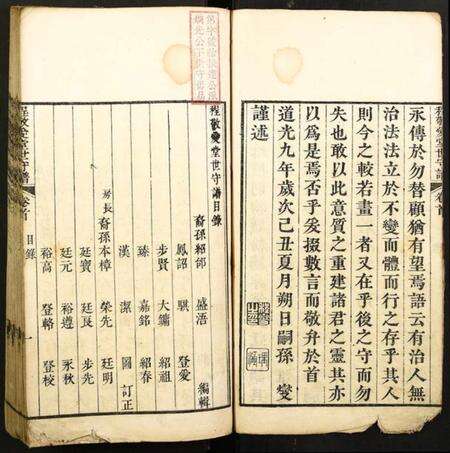 程敬愛堂世守譜 卷首
永傳於勿替顧猶有望焉語云有治人無
治法法立於不變而體而行之存乎其人
則今之較若畫一者又在乎後之守而勿
失也敢以此意質之重建諸君之靈其亦
以為是焉否乎爰掇數言而敬弁於首
謹述
道光九年歲次己丑夏月朔日嗣孫 燮
程敬愛堂世守譜目錄
裔孫 盛浯 編輯
鳳詔 騏 登愛
步賢 大鏞 紹祖
臻 嘉銘 紹春
漢 潔 圖 訂正
房長裔孫本樟 榮先 廷明
廷寶 廷長 步先
廷元 裕遵 永秋
裕高 登輅 登校
程敬愛堂世守譜 卷首 目錄 一